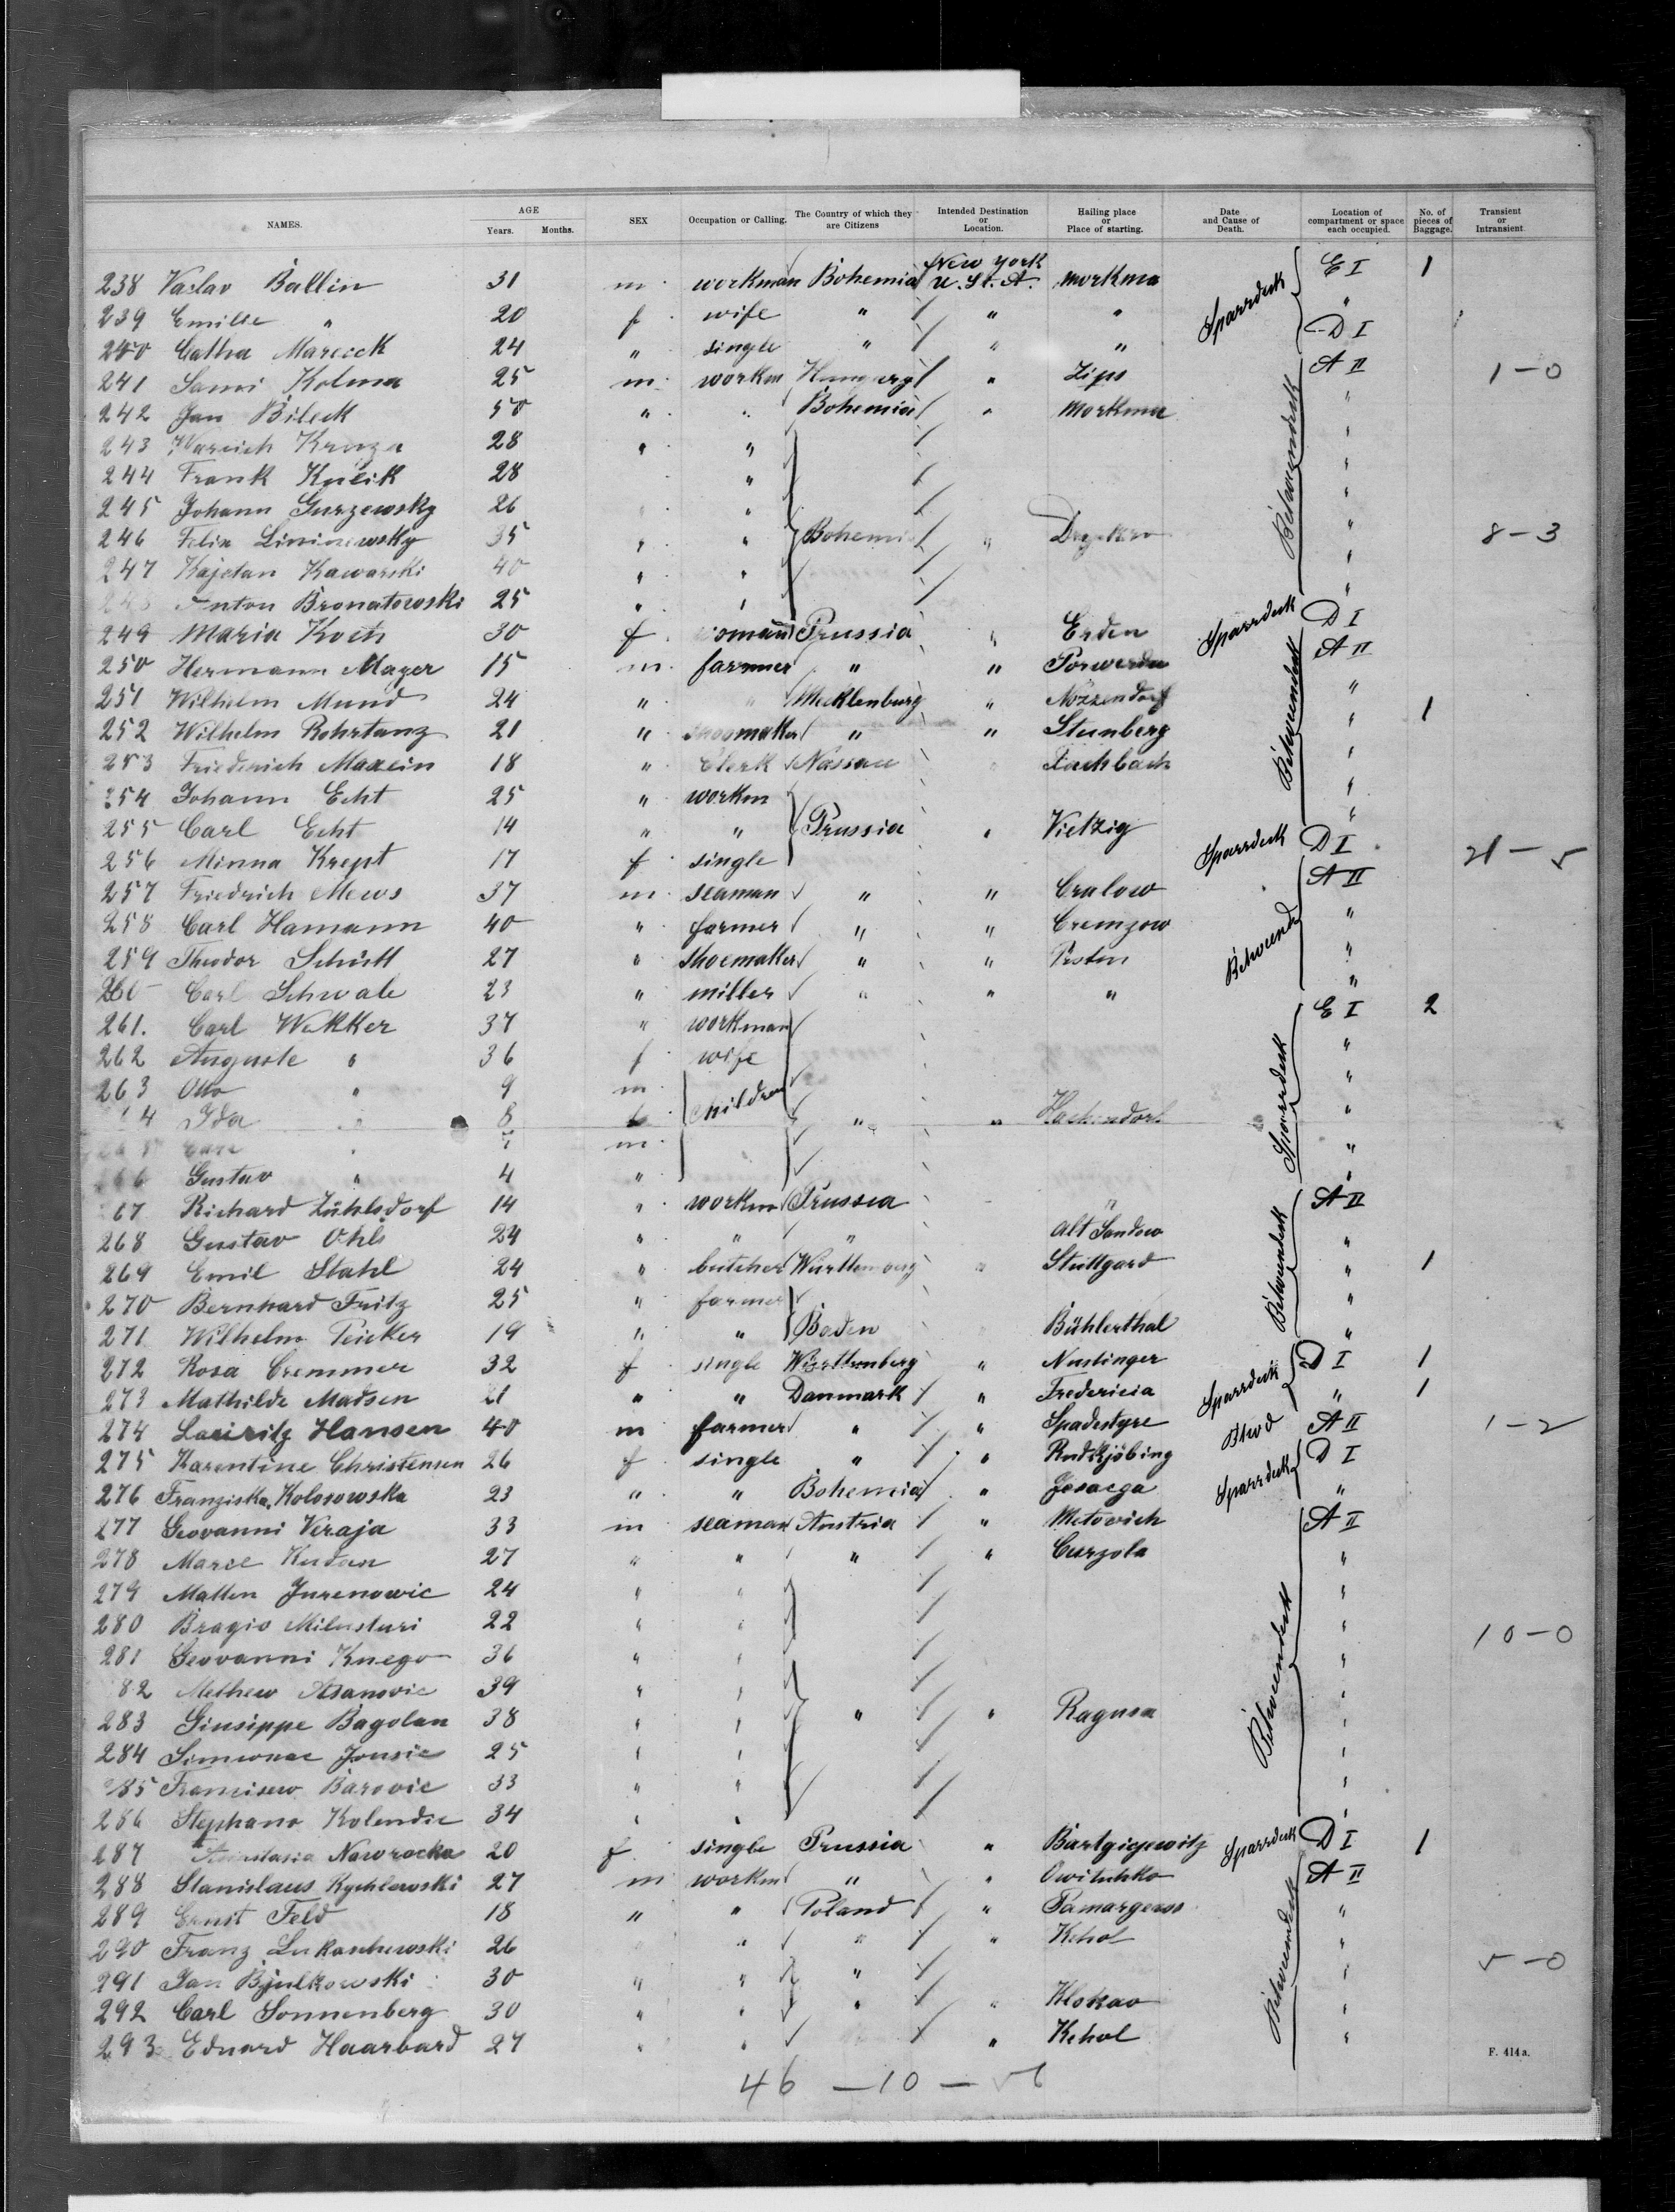 NAMES. AGE Years. Months. SEX Occupation or Calling. The Country of which they are Citizens Intended Destination or Location. Hailing place or Place of starting. Date and Cause of Death. Location of compartment or space each occupied. No. of pieces of Baggage. Transient or Intransient.
238 Vaclav Ballin 31 m workman Bohemia New York U. St. A. Morkma Sparrdeck E I 1
239 Emilie " 20 f wife " " " "
240 Catha Mareck 24 " single " " " D I
241 Sami Kolma 25 m workm Hungary " Zips A II 1-0
242 Jan Bileck 50 " " Bohemia " Morkma Betweendeck "
243 Kruza 28 " " "
244 Frank Kulik 28 " "
245 Johann Gurzewsky 26 " " "
246 Felix Lininewsky 35 " " Bohemia " " 8-3
247 Kajetan Kawarski 40 " " "
248 Anton Bronatowski 25 " " "
249 Maria Koch 30 f woman Prussia " Erden Sparrdeck D I
250 Hermann Mager 15 m farmer " " A II
251 Wilhelm Mund 24 " " Mecklenburg " Nözzendorf Betweendeck "
252 Wilhelm Rohrtanz 21 " shoomaker " " Steinberg " 1
253 Friederich Maxein 18 " Clerk Nassau " Fachbach "
254 Johann Echt 25 " workm "
255 Carl Echt 14 " " Prussia " Vietzig "
256 Minna Krept 17 f single Sparrdeck D I 21-5
257 Friedrich Mews 37 m seaman " " Cralow A II
258 Carl Hamann 40 " farmer " " Cremzow "
259 Theodor Schütt 27 " Shoemaker " " "
260 Carl Schwale 23 " miller " " " "
261. Carl Wekker 37 " workman E I 2
262 Auguste " 36 f wife "
263 Otto " 9 m children "
4 Ida " 8 " " Sparrdeck "
Carl " 7 m "
66 Gustav " 4 " "
67 Richard Zühlsdorf 14 " workm Prussia " A II
268 Gustav Ohls 24 " " " Alt Sandow Betweendeck "
269 Emil Stahl 24 " butcher Württemberg " Stuttgard " 1
270 Bernhard Fritz 25 " farmer "
271 Wilhelm 19 " " Baden Bühlerthal "
272 Rosa Cremmer 32 f single Württenberg " Nustinger D I 1
273 Mathilde Madsen 21 " " Danmark " Fredericia Sparrdeck " 1
274 Lauritz Hansen 40 m farmer " " Spadestyre A II 1-2
275 Karentine Christensen 26 f single " " Rudkjöbing D I
276 Franziska Kolosowska 23 " " Bohemia " Sparrdeck "
277 Geovanni Veraja 33 m seaman Austria " Metovich A II
278 Marie 27 " " " " Curzola "
279 Matten Jurenowic 24 " " "
280 Bragio Milusturi 22 " " " 10-0
281 Geovanni Knego 36 " " "
82 Methew Asanovic 39 " " "
283 Giusippe Bagolan 38 " " " " Ragusa Betweendeck "
284 25 " " "
285 Barovic 33 " " "
286 Stephano Kolendic 34 " " "
287 Nawrocka 20 f single Prussia " Sparrdeck D I 1
288 Stanislaus Rychlewski 27 m workm " " A II
289 Ernst Feld 18 " " Poland " "
290 Franz Lukaschewski 26 " " " " Kehol "
291 Jan 30 " " " Betweendeck " 5-0
292 Carl Sonnenberg 30 " " " " Klokao "
293 Eduard Haarbard 27 " " " Kehol "
F. 414a.
46 - 10 - 56